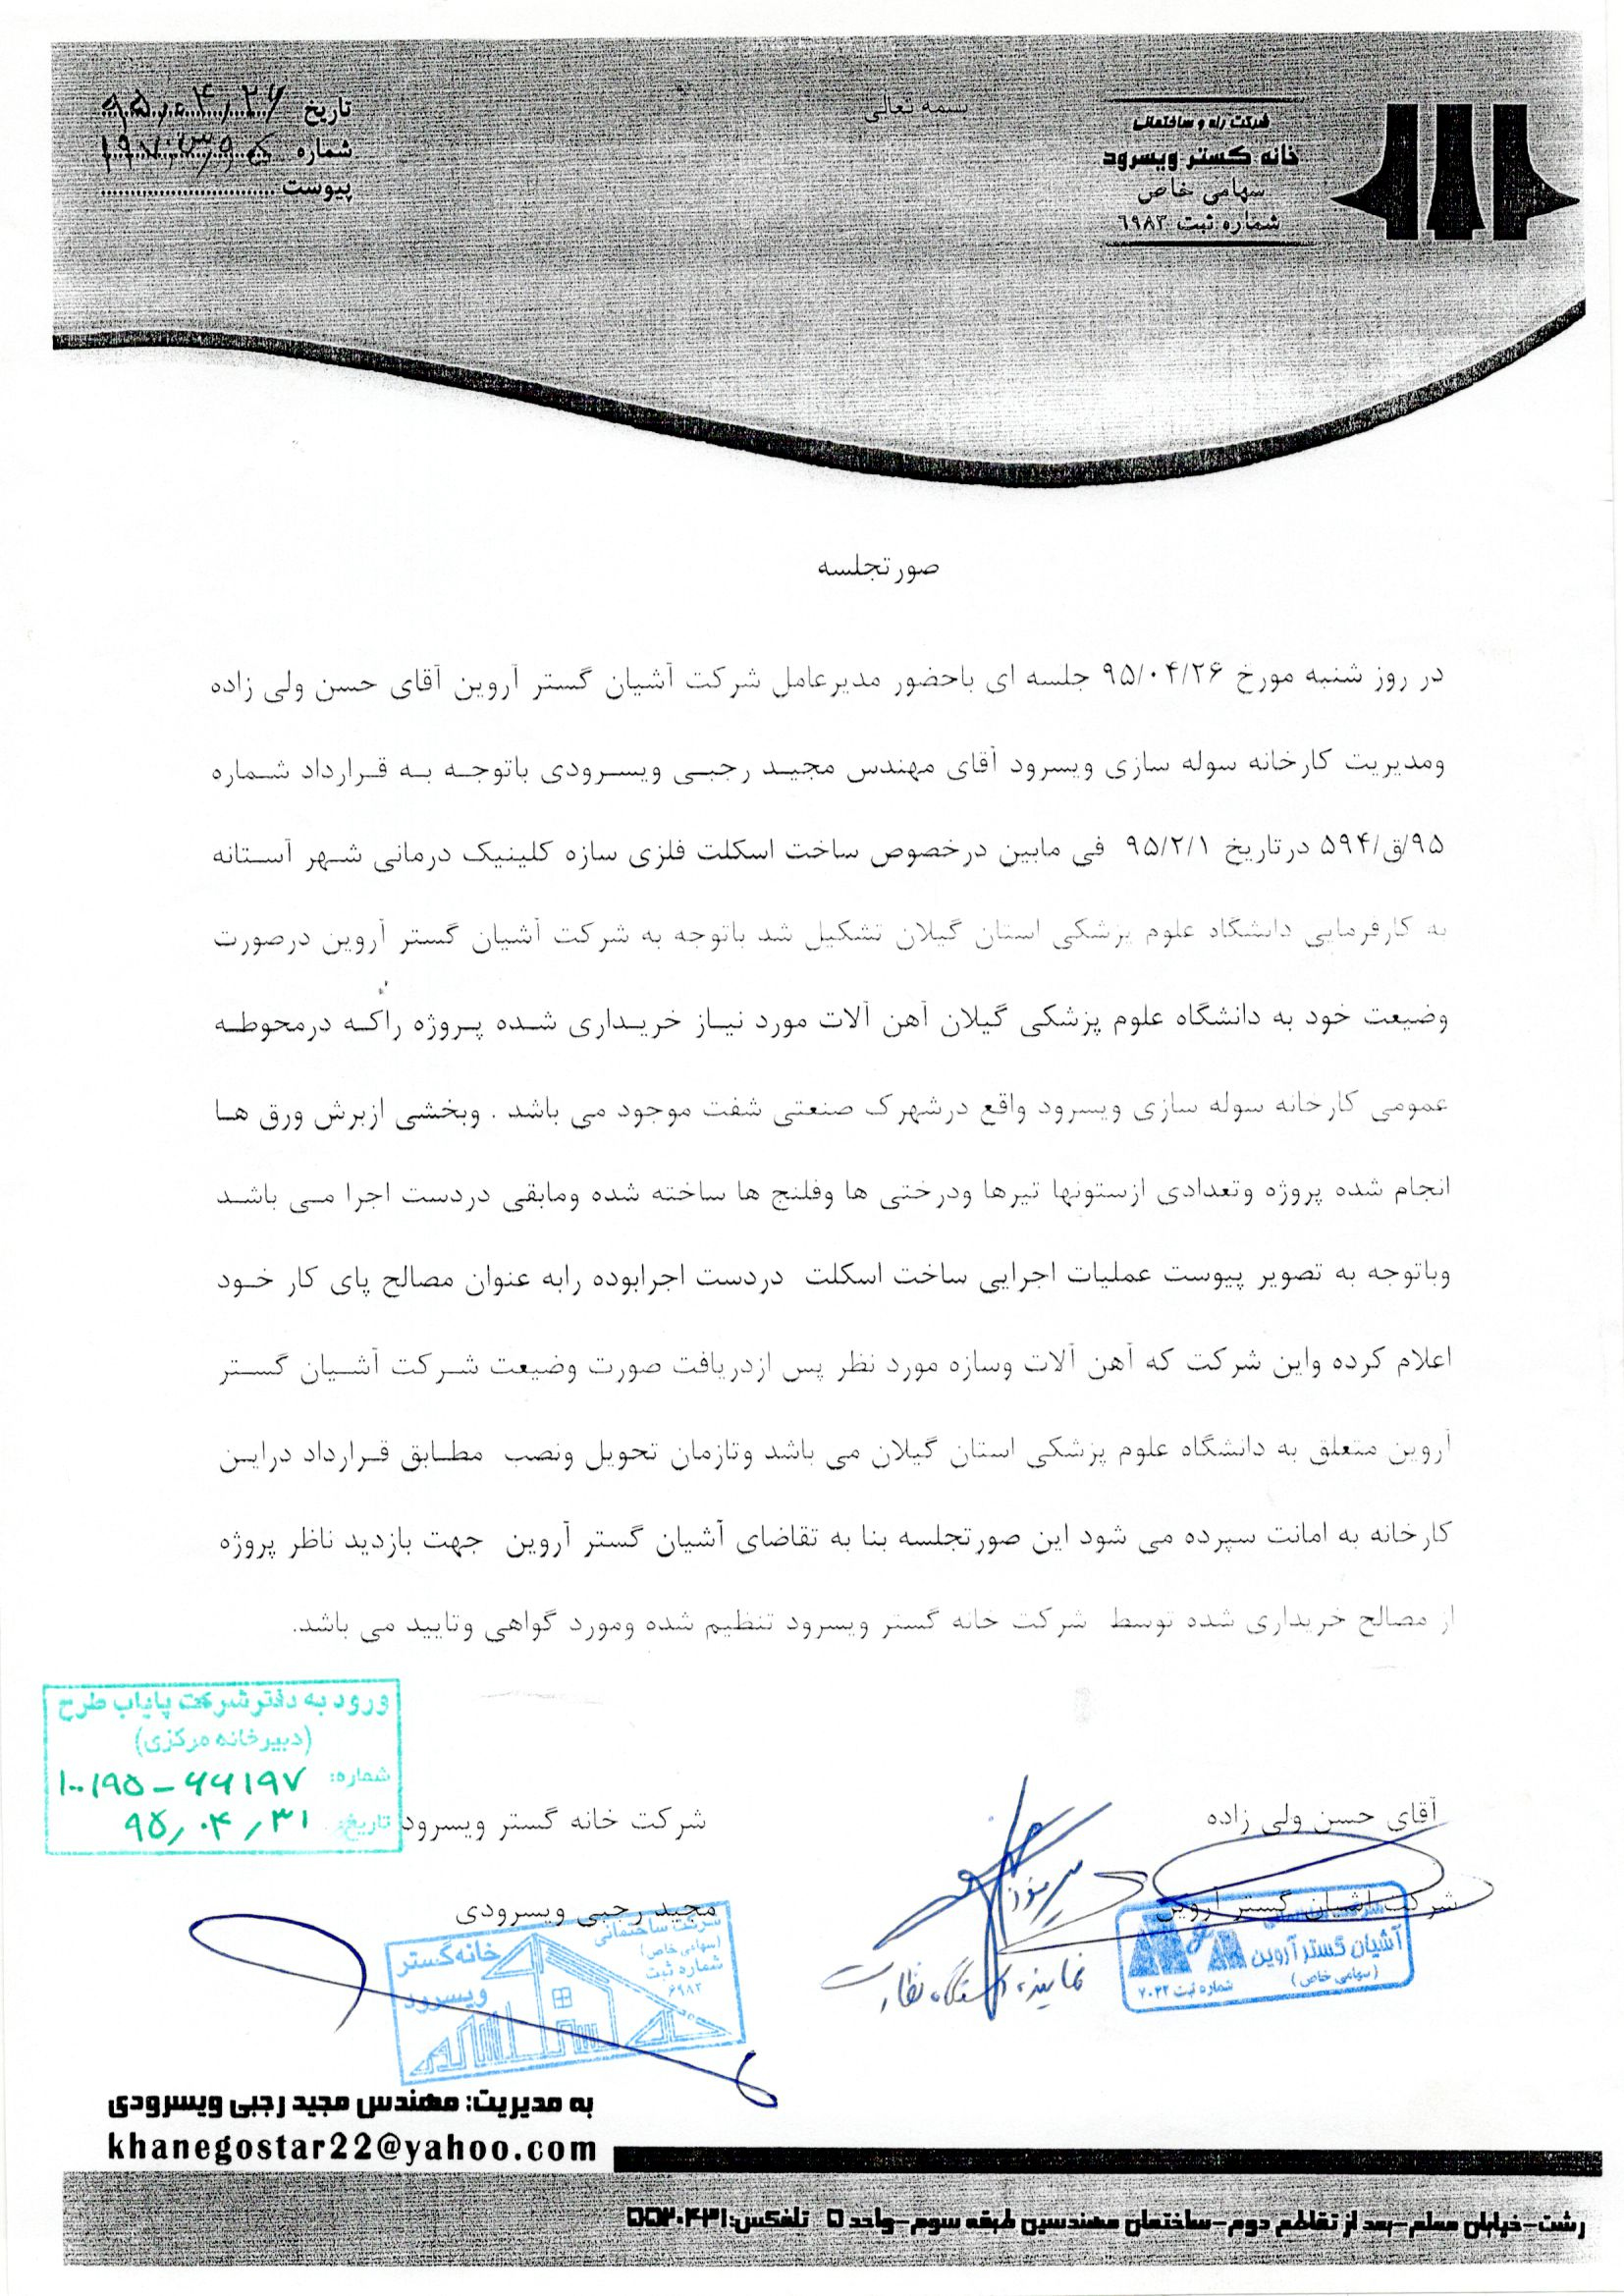 بسمه تعالی
شرکت راه و ساختمانی
خانه گستر ویسرود
سهامی خاص
شماره ثبت ٦٩٨٣
تاریخ ۹۵/۰۴/۲۶
شماره
پیوست
صورتجلسه
در روز شنبه مورخ ۹۵/۰۴/۲۶ جلسه ای باحضور مدیرعامل شرکت آشیان گستر آروین آقای حسن ولی زاده
ومدیریت کارخانه سوله سازی ویسرود آقای مهندس مجید رجبی ویسرودی باتوجه به قرارداد شماره
۹۵/ق/۵۹۴ درتاریخ ۹۵/۲/۱ فی مابین درخصوص ساخت اسکلت فلزی سازه کلینیک درمانی شهر آستانه
به کارفرمایی دانشگاه علوم پزشکی استان گیلان تشکیل شد باتوجه به شرکت آشیان گستر آروین درصورت
وضیعت خود به دانشگاه علوم پزشکی گیلان آهن آلات مورد نیاز خریداری شده پروژه راکه درمحوطه
عمومی کارخانه سوله سازی ویسرود واقع درشهرک صنعتی شفت موجود می باشد . وبخشی ازبرش ورق ها
انجام شده پروژه وتعدادی ازستونها تیرها ودرختی ها وفلنج ها ساخته شده ومابقی دردست اجرا می باشد
وباتوجه به تصویر پیوست عملیات اجرایی ساخت اسکلت دردست اجرابوده رابه عنوان مصالح پای کار خود
اعلام کرده واین شرکت که آهن آلات وسازه مورد نظر پس ازدریافت صورت وضیعت شرکت آشیان گستر
آروین متعلق به دانشگاه علوم پزشکی استان گیلان می باشد وتازمان تحویل ونصب مطابق قرارداد دراین
کارخانه به امانت سپرده می شود این صورتجلسه بنا به تقاضای آشیان گستر آروین جهت بازدید ناظر پروژه
از مصالح خریداری شده توسط شرکت خانه گستر ویسرود تنظیم شده ومورد گواهی وتایید می باشد.
ورود به دفتر شرکت پایاب طرح
(دبیرخانه مرکزی)
شماره: ۱۰۰/۹۵-۶۶۱۹۷
تاریخ: ۹۵/۰۴/۳۱
آقای حسن ولی زاده
شرکت آشیان گستر آروین
آشیان گستر آروین
(سهامی خاص)
شماره ثبت ۷۰۲۲
نماینده دستگاه نظارت
شرکت خانه گستر ویسرود
مجید رجبی ویسرودی
شرکت ساختمانی
(سهامی خاص)
شماره ثبت
۶۹۸۳
خانه گستر
ویسرود
به مدیریت: مهندس مجید رجبی ویسرودی
khanegostar22@yahoo.com
رشت-خیابان معلم-بعد از تقاطع دوم-ساختمان مهندسین طبقه سوم-واحد ۵ تلفکس: ۵۵۳۰۴۳۱